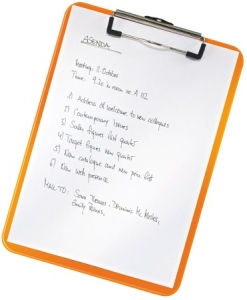 AGENDA
Meeting: 8 October
Time: 9.20 in room no A 112
1) Address of welcome to new collegues
2) Contemporary Issues
3) Sales figures last quarter
4) Target figures new quarter
5) New catalogue and new price list
6) New web presence
MAIL TO: Sara Thomas, Dominic Mc
Emily